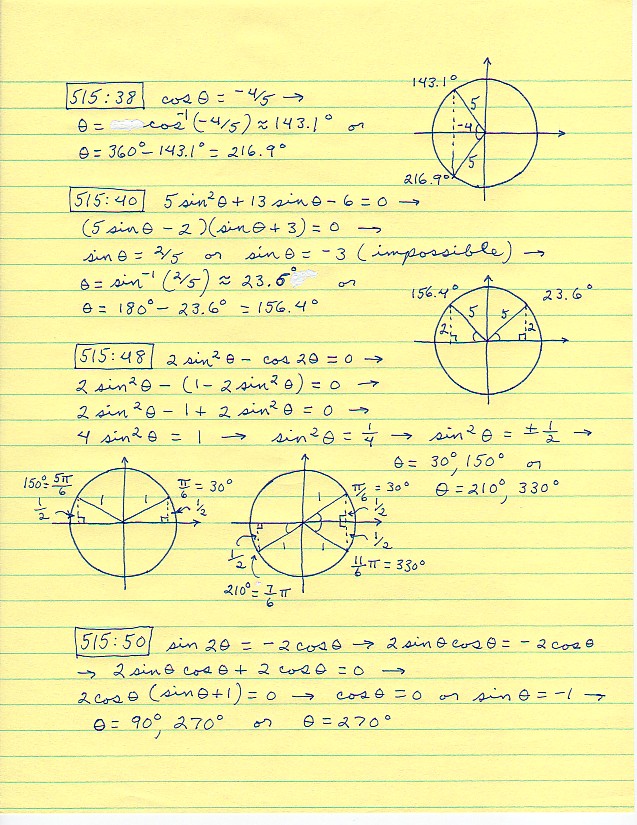 515:38 cos θ = -4/5 →
θ = cos⁻¹(-4/5) ≈ 143.1° or
θ = 360° - 143.1° = 216.9°
143.1°
5
-4
5
216.9°
515:40 5 sin²θ + 13 sin θ - 6 = 0 →
(5 sin θ - 2)(sin θ + 3) = 0 →
sin θ = 2/5 or sin θ = -3 (impossible) →
θ = sin⁻¹(2/5) ≈ 23.6° or
θ = 180° - 23.6° = 156.4°
156.4° 23.6°
5 5
2 2
515:48 2 sin²θ - cos 2θ = 0 →
2 sin²θ - (1 - 2 sin²θ) = 0 →
2 sin²θ - 1 + 2 sin²θ = 0 →
4 sin²θ = 1 → sin²θ = 1/4 → sin²θ = ± 1/2 →
θ = 30°, 150° or
θ = 210°, 330°
150° = 5π/6 π/6 = 30°
1/2 1 1 1/2
π/6 = 30°
1 1/2
1/2 1 1 1/2
11/6 π = 330°
210° = 7/6 π
515:50 sin 2θ = -2 cos θ → 2 sin θ cos θ = -2 cos θ
→ 2 sin θ cos θ + 2 cos θ = 0 →
2 cos θ (sin θ + 1) = 0 → cos θ = 0 or sin θ = -1 →
θ = 90°, 270° or θ = 270°